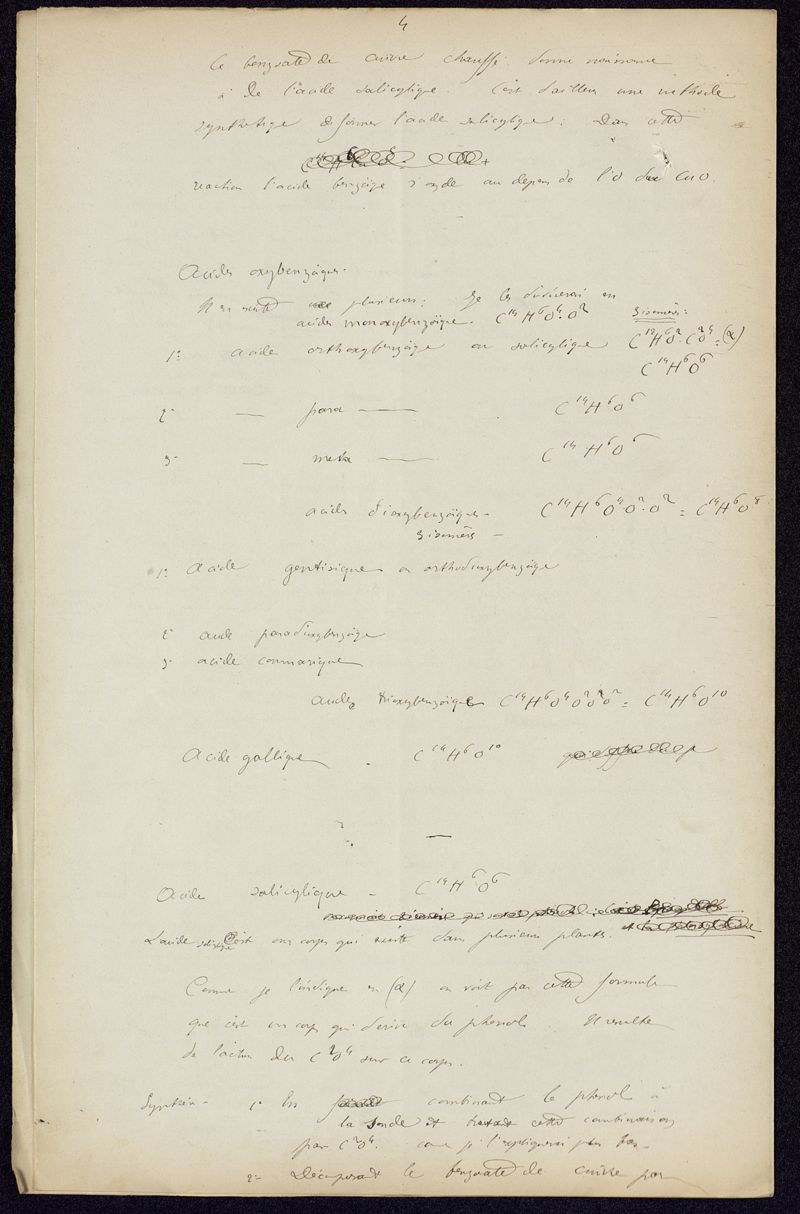 4
Le benzoate de cuivre chauffé donne naissance
à de l'acide salicylique. C'est d'ailleurs une méthode
synthétique de former l'acide salicylique : Dans cette
réaction l'acide benzoïque s'oxyde au dépens de l'O du CuO.
Acides oxybenzoïques.
Il en existe plusieurs : Je les diviserai en
acides monoxybenzoïque. C¹⁴H⁶O⁴.O² 3 isomères :
1° acide orthoxybenzoïque ou salicylique C¹²H⁶O².C²O⁴ = (α)
C¹⁴H⁶O⁶
2° — para — C¹⁴H⁶O⁶
3° — meta — C¹⁴H⁶O⁶
acides dioxybenzoïques - C¹⁴H⁶O⁴O².O² = C¹⁴H⁶O⁸
3 isomères -
1° Acide gentisique ou orthodioxybenzoïque
2° acide paradioxybenzoïque
3° acide
acides trioxybenzoïques C¹⁴H⁶O⁴O²O²O² = C¹⁴H⁶O¹⁰
Acide gallique . C¹⁴H⁶O¹⁰
Acide salicylique - C¹⁴H⁶O⁶
L'acide salicylique C'est un corps qui existe dans plusieurs plantes.
Comme je l'indique en (α) on voit par cette formule
que c'est un corps qui dérive du phenol. Il résulte
de l'action du C²O⁴ sur ce corps.
Synthèse - 1° En combinant le phenol à
la soude et traitant cette combinaison
par C²O⁴. comme je l'expliquerai plus bas -
2° Décomposant le benzoate de cuivre par